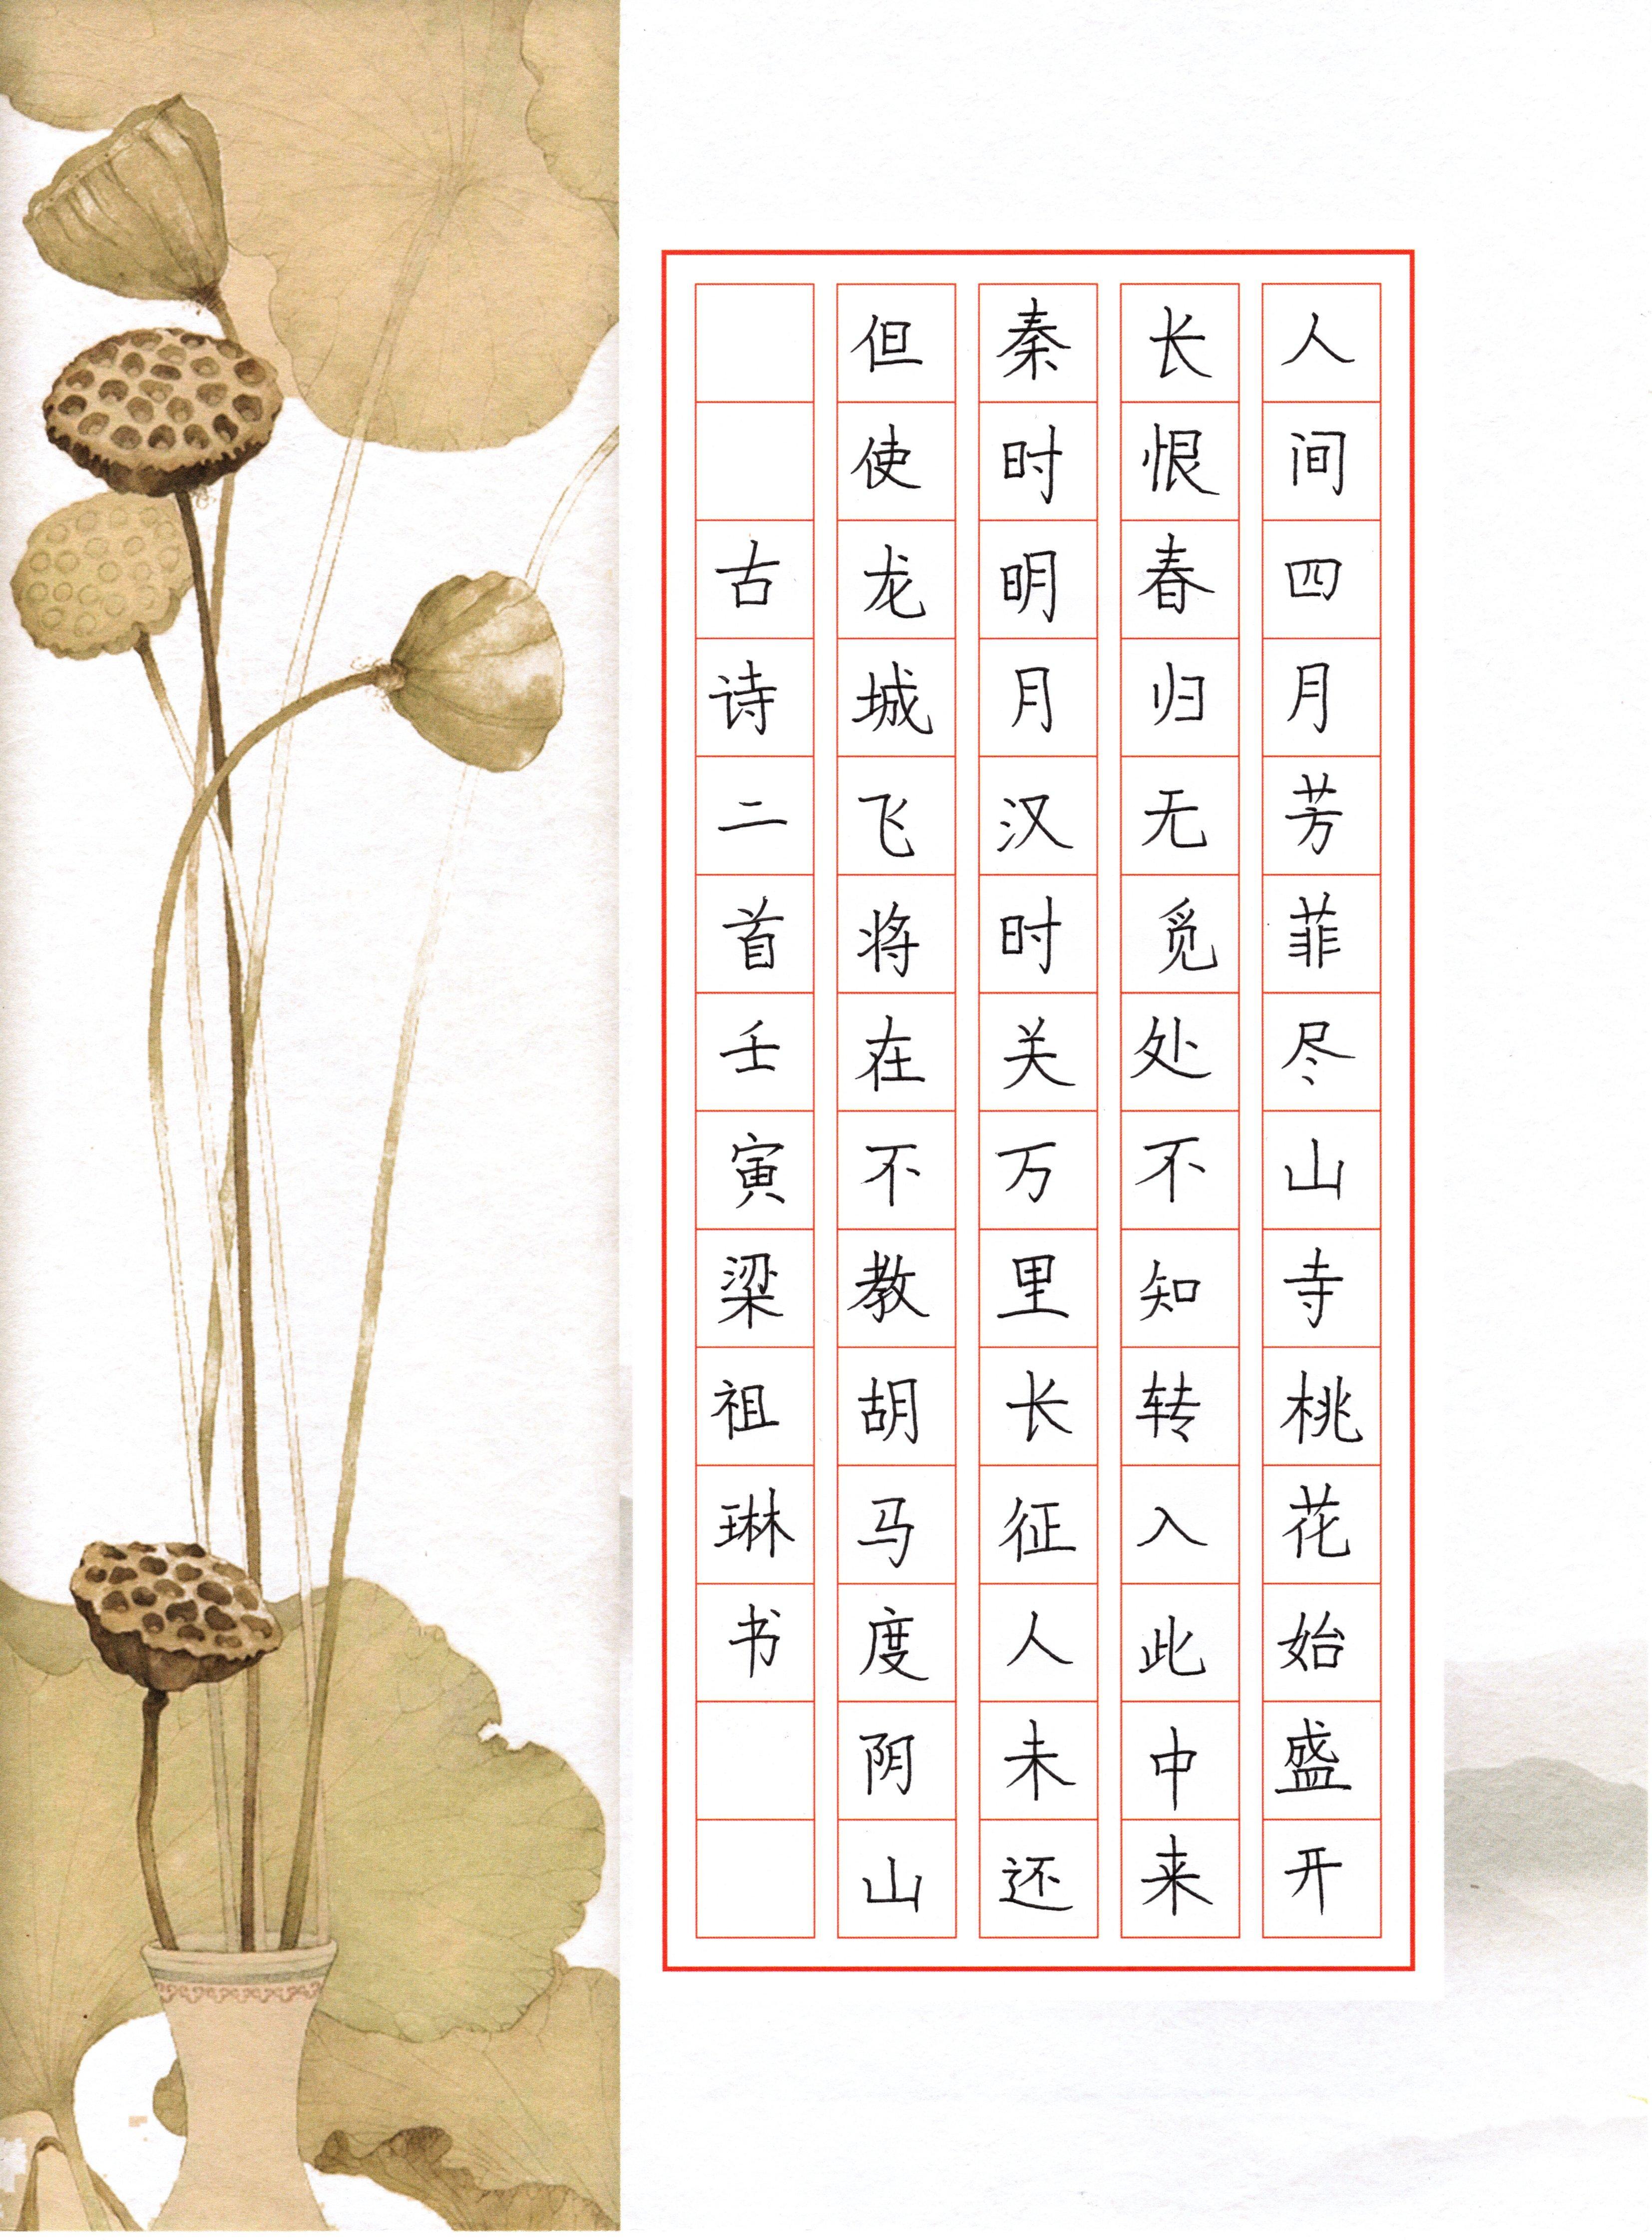 人间四月芳菲尽山寺桃花始盛开
长恨春归无觅处不知转入此中来
秦时明月汉时关万里长征人未还
但使龙城飞将在不教胡马度阴山
古诗二首壬寅梁祖琳书